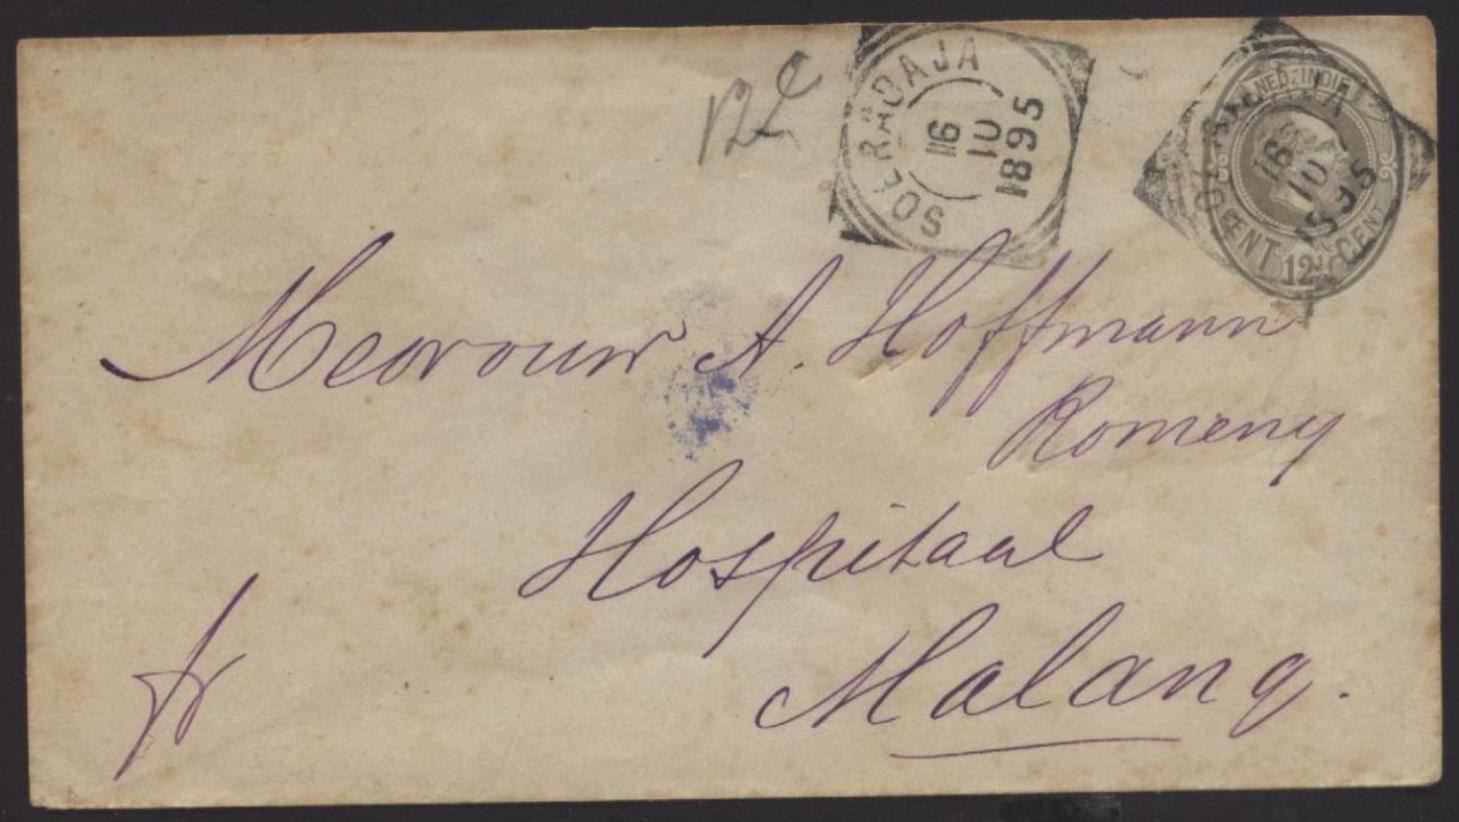 12 c
SOERABAJA
16
10
1895
NED: INDIE
SOERABAJA
16
10
1895
CENT 12½ CENT
Mevrouw A. Hoffmann
Romeny
Hospitaal
Malang.
fr